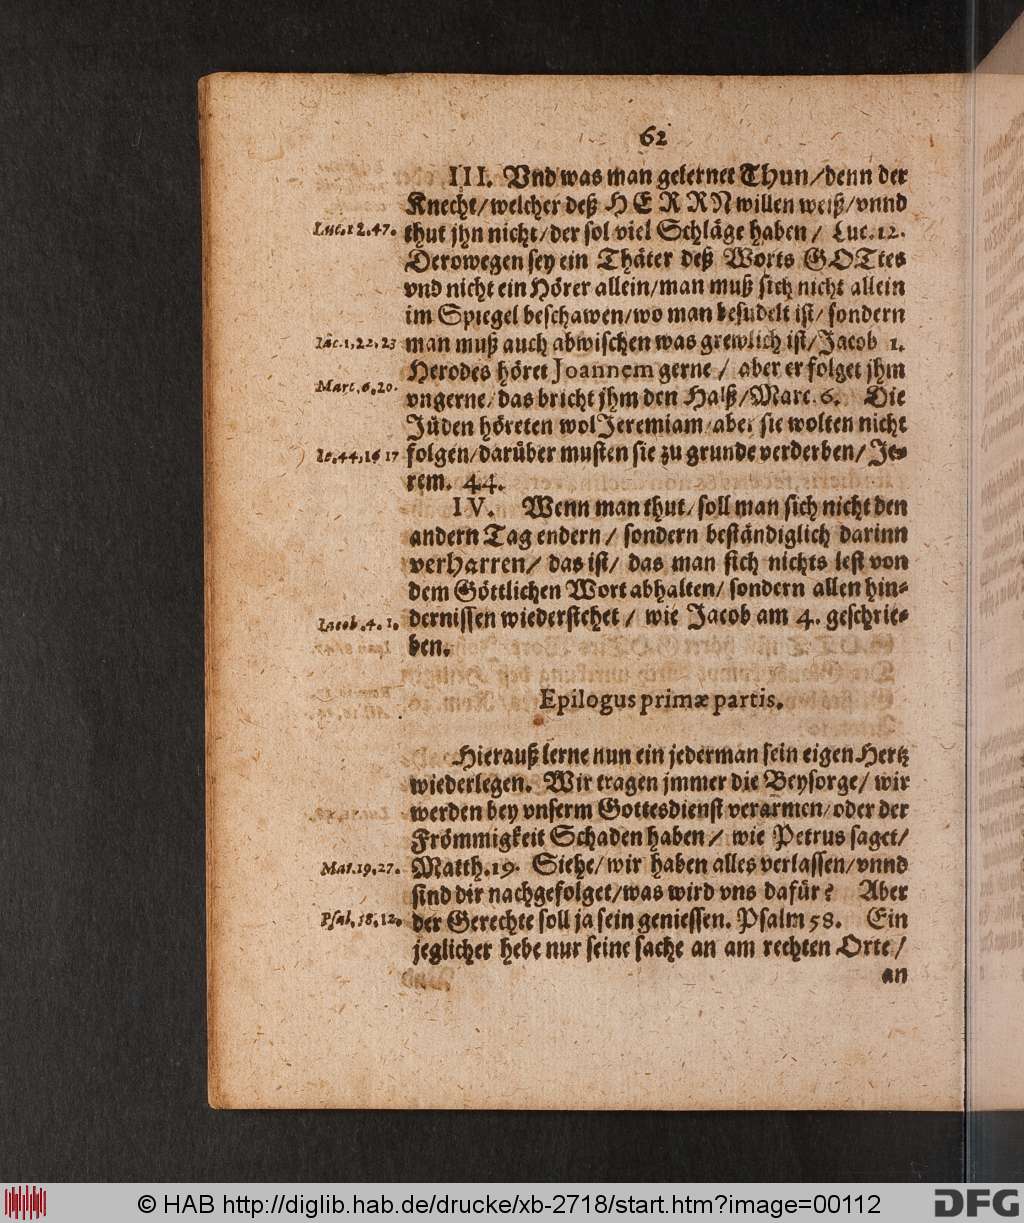 62
III. Vnd was man gelernet Thun/denn der
Knecht/welcher deß HERRN willen weiß/vnnd
Luc.12.47.
thut jhn nicht/der sol viel Schläge haben/ Luc.12.
Derowegen sey ein Thäter deß Worts GOTtes
vnd nicht ein Hörer allein/man muß sich nicht allein
im Spiegel beschawen/wo man besudelt ist/sondern
Iac.1,22,23
man muß auch abwischen was grewlich ist/Jacob 1.
Herodes höret Joannem gerne/ aber er folget jhm
Marc.6,20.
vngerne/das bricht jhm den Halß/Marc.6. Die
Jüden höreten wol Jeremiam/aber sie wolten nicht
Ie.44,16 17
folgen/darüber musten sie zu grunde verderben/Je-
rem. 44.
IV. Wenn man thut/soll man sich nicht den
andern Tag endern/ sondern beständiglich darinn
verHarren/ das ist/ das man sich nichts lest von
dem Göttlichen Wort abhalten/ sondern allen hin-
Iacob.4.1.
dernissen wiederstehet/ wie Jacob am 4. geschrie-
ben.
Epilogus primæ partis.
Hierauß lerne nun ein jederman sein eigen Hertz
wiederlegen. Wir tragen jmmer die Beysorge/ wir
werden bey vnserm Gottesdienst verarmen/oder der
Frömmigkeit Schaden haben/ wie Petrus saget/
Mat.19.27.
Matth.19. Siehe/wir haben alles verlassen/vnnd
sind dir nachgefolget/was wird vns dafür? Aber
Psal.58.12.
der Gerechte soll ja sein geniessen. Psalm 58. Ein
jeglicher hebe nur seine sache an am rechten Orte/
an
© HAB http://diglib.hab.de/drucke/xb-2718/start.htm?image=00112
DFG